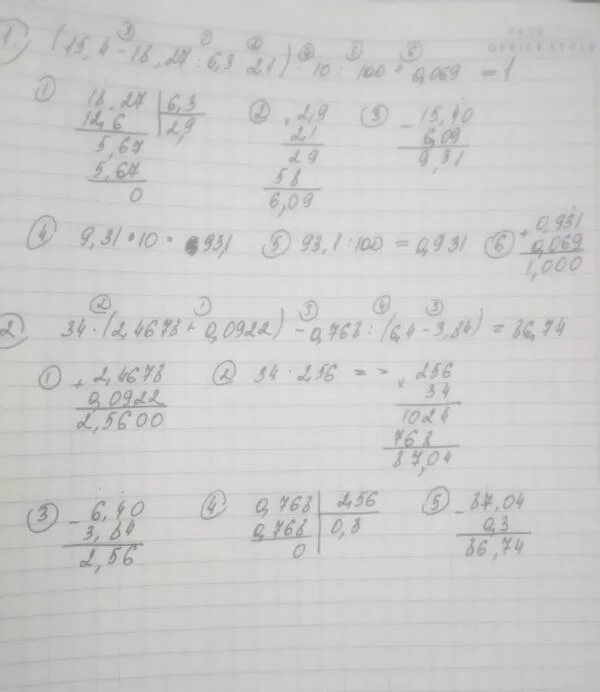 OFFICE STYLE
1. (15,4 - 18,27 : 6,3 · 2,1) · 10 : 100 + 0,069 = 1
① 18,27 | 6,3
12,6 | 2,9
5,67
5,67
0
② × 2,9
2,1
29
58
6,09
③ - 15,40
6,09
9,31
④ 9,31 · 10 = 93,1 ⑤ 93,1 : 100 = 0,931 ⑥ + 0,931
0,069
1,000
2. 34 · (2,4678 + 0,0922) - 0,768 : (6,4 - 3,84) = 86,74
① + 2,4678
0,0922
2,5600
② 34 · 2,56 = = × 256
34
1024
768
87,04
③ - 6,40
3,84
2,56
④ 0,768 | 2,56
0,768 | 0,3
0
⑤ - 87,04
0,3
86,74